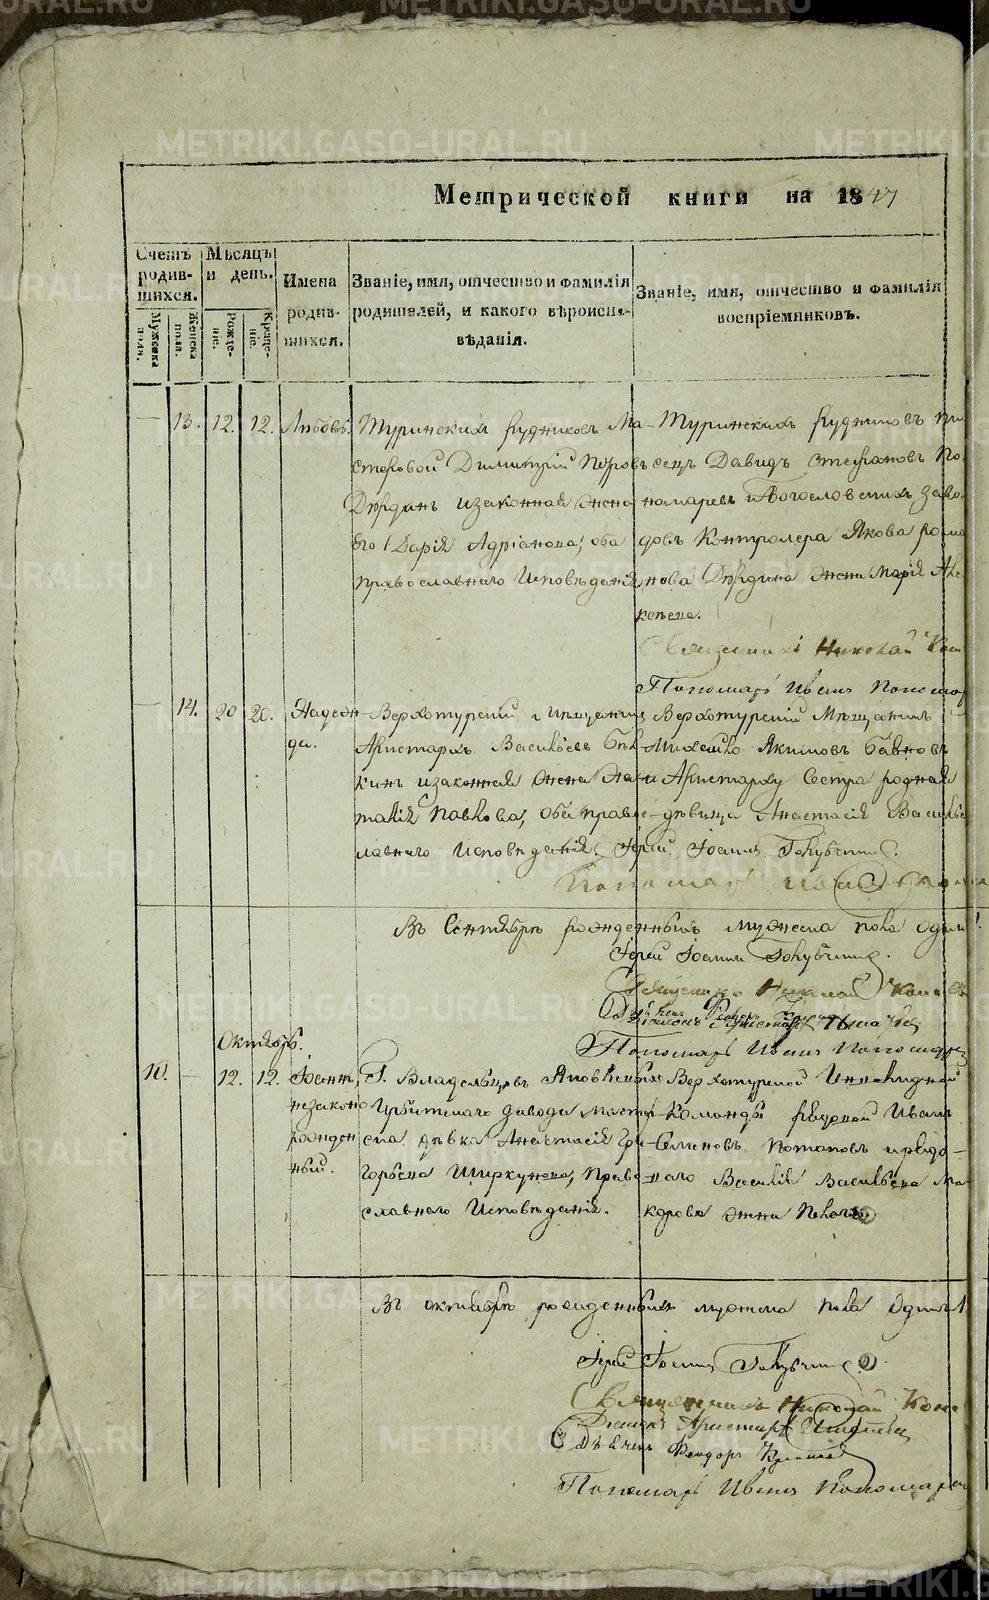 METRIKI.GASO-URAL.RU
Метрической книги на 1847
Счетъ родившихся.
Мужска пола.
Женска пола.
Мѣсяцъ и день.
Рожденіе.
Крещеніе.
Имена родившихся.
Званіе, имя, отчество и фамилія родителей, и какого вѣроисповѣданія.
Званіе, имя, отчество и фамилія воспріемниковъ.
— 13. 12. 12. Любовь.
Туринскихъ рудниковъ Ма-
стеровой Димитрій Петровъ
законная жена
его Дарія Адріанова, оба
православнаго Исповѣданія
Туринскихъ рудниковъ пи-
сецъ Давидъ Стефановъ По-
номаревъ и Богословскихъ заво-
довъ Контролера Якова рома-
нова жена Марія Але-
ксѣева.
Священникъ Николай
Пономарь Иванъ Пономар
— 14. 20 20. Надеж-
да.
Верхотурскій Мѣщанинъ
Аристархъ Васильевъ
кинъ и законная жена
талія Павлова, оба право-
славнаго Исповѣданія.
Верхотурскій Мѣщанинъ
Михайло Якимовъ
и Аристарху Сестра родная
дѣвица Анастасія Василье
Іерей Іоаннъ Голубчик
Пономарь Иванъ
Въ Сентябрѣ рожденныхъ мужеска пола одинъ 1.
Іерей Іоаннъ Голубчик
Священникъ Николай
Пономарь Иванъ Пономарев
Октябрь.
10. — 12. 12. Іоаннъ,
незаконно
рожден-
ный.
Г. Владельцевъ Яковлевыхъ
Ирбитскаго завода Мастер-
ска дѣвка Анастасія Гри-
горьева Ширкунова, Право-
славнаго Исповѣданія.
Верхотурской Инвалидной
Команды рядовой Иванъ
Семеновъ Потаповъ и рядо-
ваго Василія Васильева Ма-
карова жена
Въ октябрѣ рожденныхъ мужеска пола Одинъ 1.
Іерей Іоаннъ Голубчик
Священникъ Николай
Дьяконъ Аристархъ
Дьячекъ Феодоръ
Пономарь Иванъ Пономарев